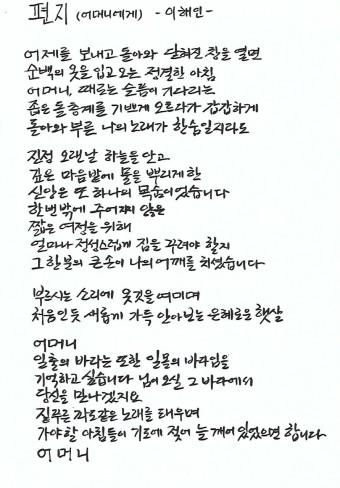 편지 (어머니에게) - 이해인 -
어제를 보내고 돌아와 닫혀진 창을 열면
순백의 옷을 입고 오는 정결한 아침
어머니, 때로는 슬픔이 기다리는
좁은 돌층계를 기쁘게 오르다가 갑갑하게
돌아와 부를 나의 노래가 한숨일지라도
진정 오랜날 하늘을 안고
깊은 마음밭에 돌을 뿌리게한
신앙은 또 하나의 목숨이었습니다
한번밖에 주어지지 않은
짧은 여정을 위해
얼마나 정성스럽게 짐을 꾸려야 할지
그 한분의 큰손이 나의 어깨를 치셨습니다
부르시는 소리에 옷깃을 여미며
처음인듯 새롭게 가득 안아보는 은혜로운 햇살
어머니
일출의 바다는 또한 일몰의 바다임을
기억하고 싶습니다 님이 오실 그 바다에서
당신을 만나겠지요
짙푸른 파도같은 노래를 태우며
가야할 아침들이 기도에 젖어 늘 깨어 있었으면 합니다
어머니